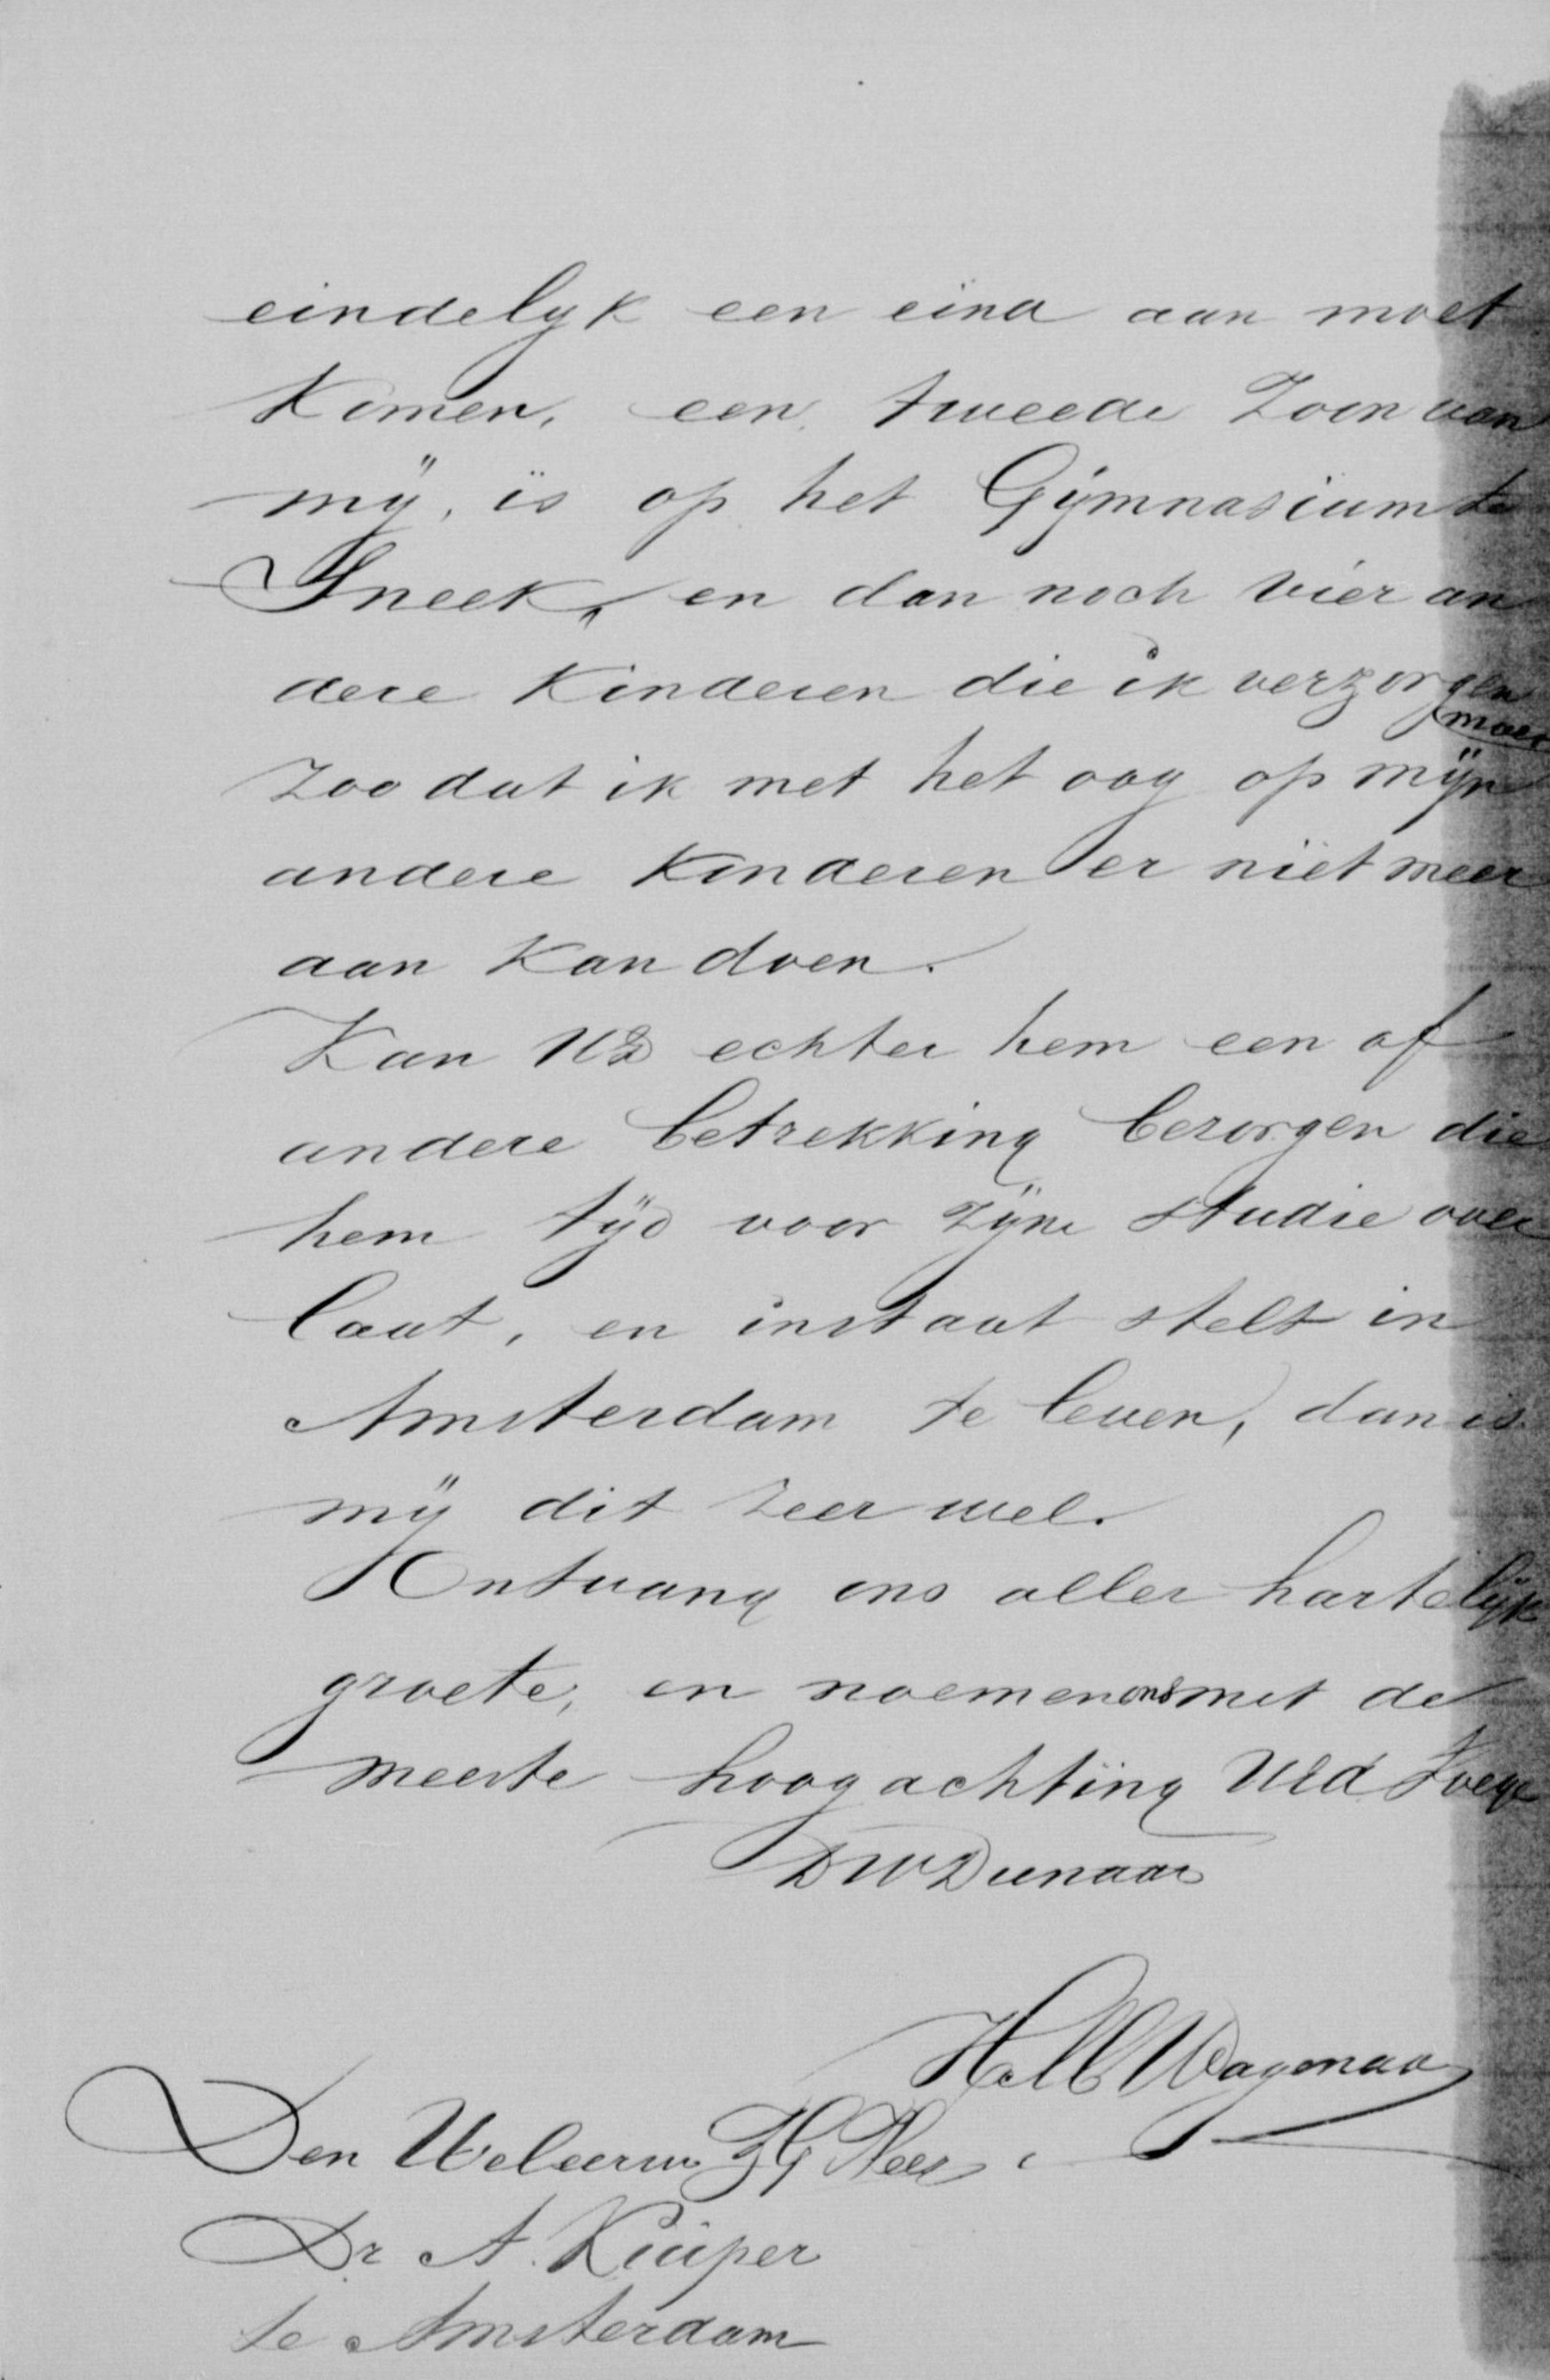 eindelyk een eind aan moet
Komen, een tweede Zoon van
mÿ, is op het Gÿmnasium te
Sneek, en dan noch vier an
dere Kinderen die ik verzorgen
moet
Zoo dat ik met het oog op mÿn
andere Kinderen er niet meer
aan Kan doen.
Kan UEd echter hem een of
andere betrekking bezorgen die
hem tÿd voor zÿne studie over
laat, en instaat stelt in
Amsterdam te leven, dan is
mÿ dit zeer wel.
Ontvang ons aller hartelÿk
groete, en noemen ons met de
meeste hoogachting UEd Toege
DWDienaar
Wagenaar
Den Weleerw Heer
Dr A. Kuiper
te Amsterdam